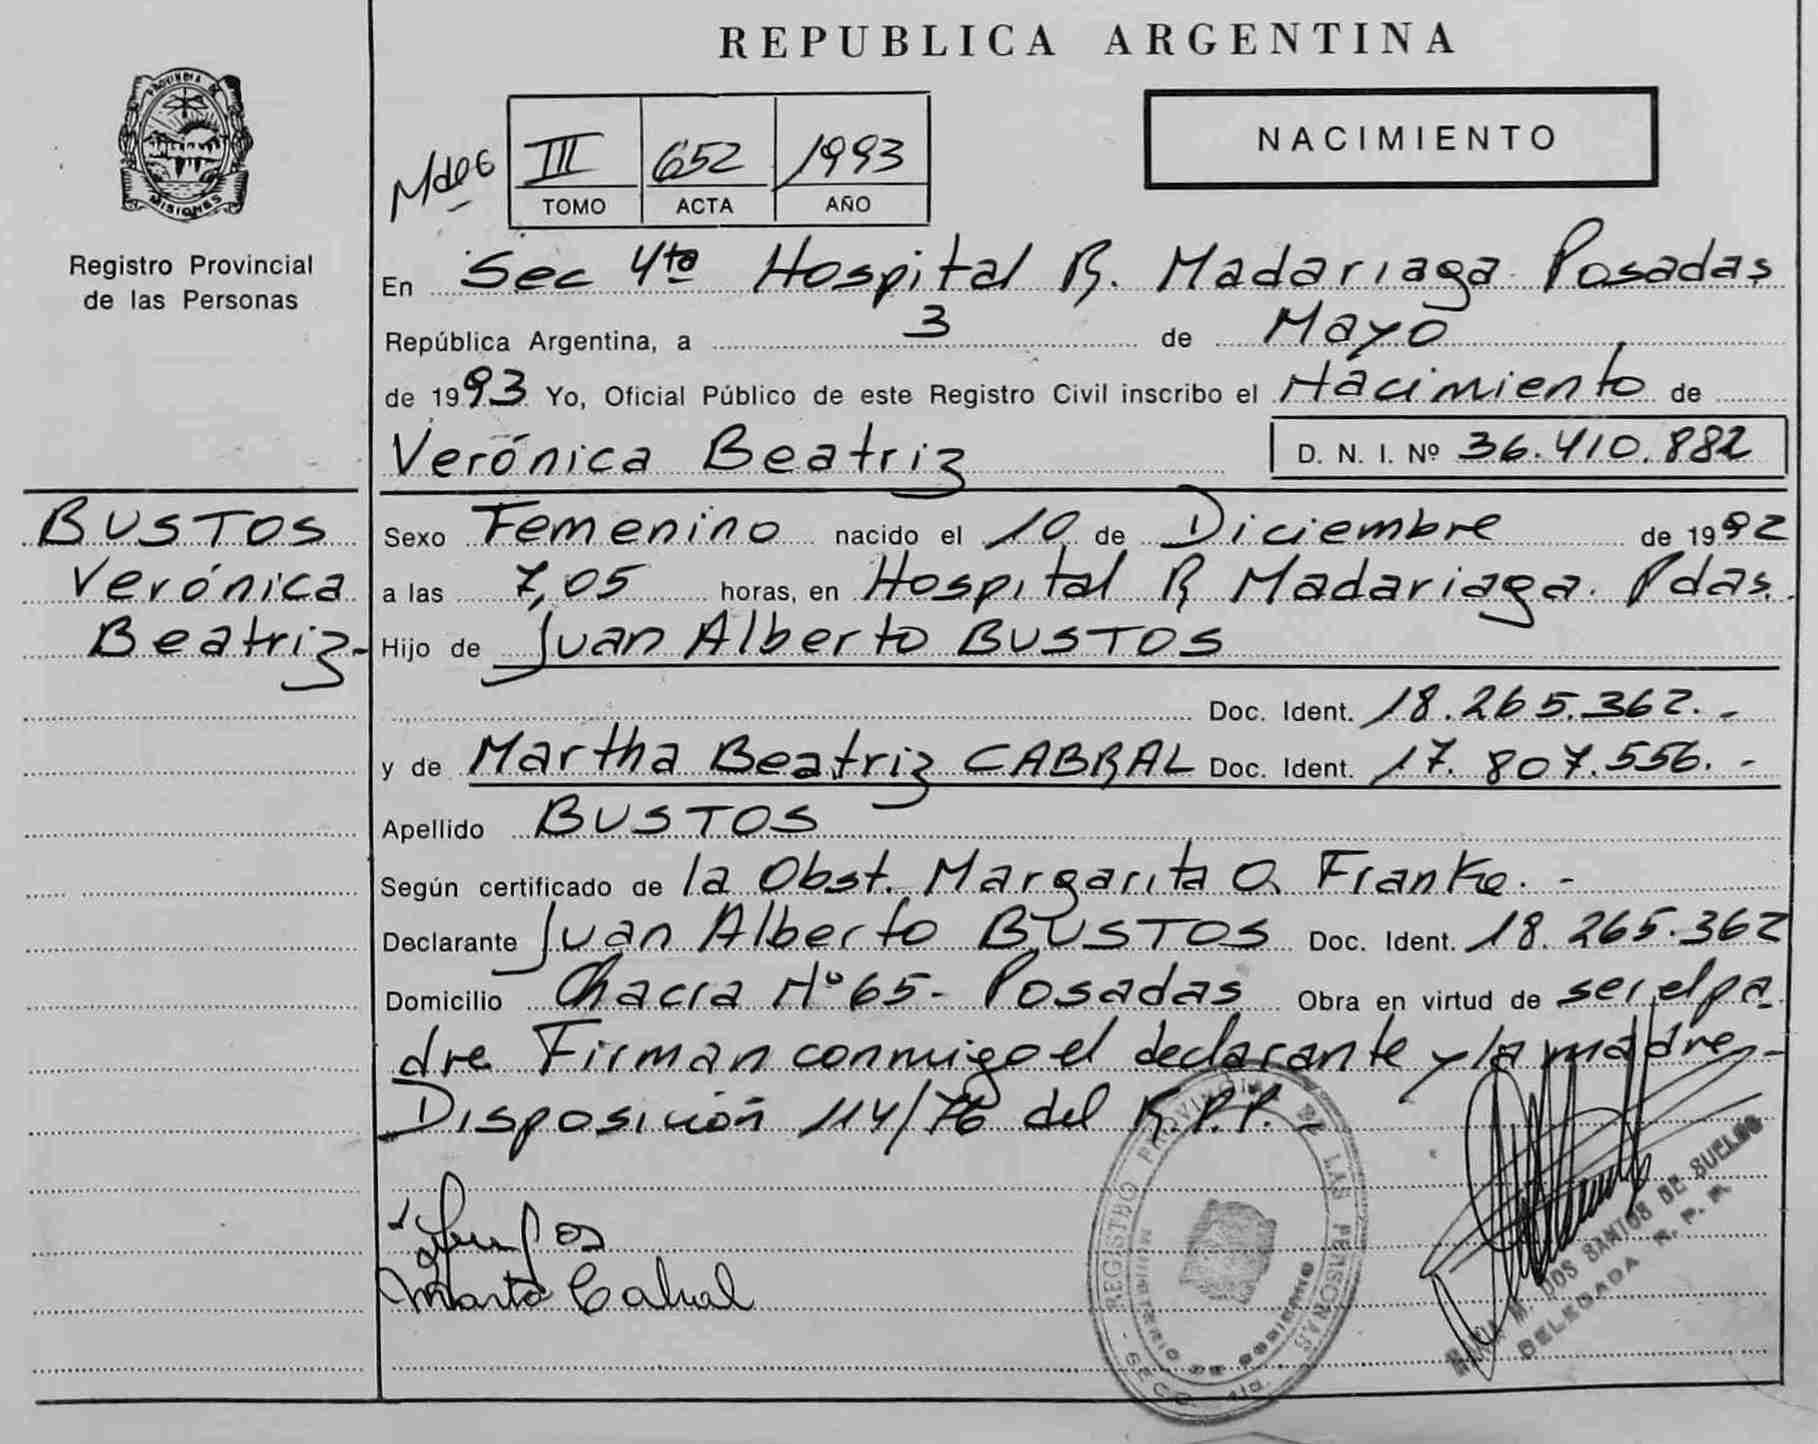 REPUBLICA ARGENTINA
PROVINCIA DE
MISIONES
Registro Provincial
de las Personas
III 652 1993
TOMO ACTA AÑO
NACIMIENTO
En Sec 4ta Hospital R. Madariaga Posadas
República Argentina, a 3 de Mayo
de 1993 Yo, Oficial Público de este Registro Civil inscribo el Nacimiento de
Verónica Beatriz D. N. I. Nº 36.410.882
BUSTOS
Verónica
Beatriz-
Sexo Femenino nacido el 10 de Diciembre de 1992
a las 7,05 horas, en Hospital R Madariaga. Pdas.
Hijo de Juan Alberto BUSTOS
Doc. Ident. 18.265.362.-
y de Martha Beatriz CABRAL Doc. Ident. 17.807.556.-
Apellido BUSTOS
Según certificado de la Obst. Margarita O. Franke.-
Declarante Juan Alberto BUSTOS Doc. Ident. 18.265.362
Domicilio Chacra Nº65- Posadas Obra en virtud de ser el pa
dre Firman conmigo el declarante y la madre-
Disposición 114/76 del R.P.P.-
Marta Cabral
REGISTRO PROVINCIAL DE LAS PERSONAS
MINISTERIO DE GOBIERNO
SECC. 4ta.
M. DOS SANTOS DE SUELOS
DELEGADA R. P. P.